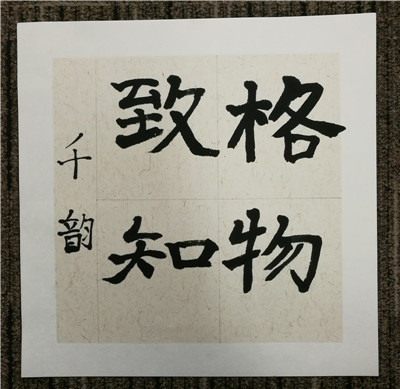 格物
致知
千韵